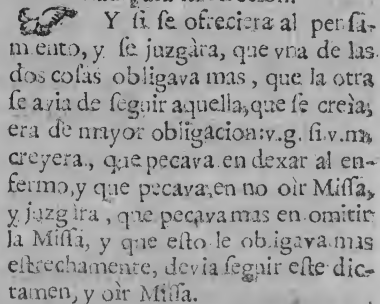 Y si se ofreciera al pensa-
miento, y se juzgàra, que vna de las
dos cosas obligava mas, que la otra
se avia de seguir aquella, que se creìa,
era de mayor obligacion: v.g. si v.m.
creyera, que pecava en dexar al en-
fermo, y que pecava, en no oìr Missa,
y juzgàra, que pecava mas en omitir
la Missa, y que esto le obligava mas
estrechamente, devia seguir este dic-
tamen, y oìr Missa.